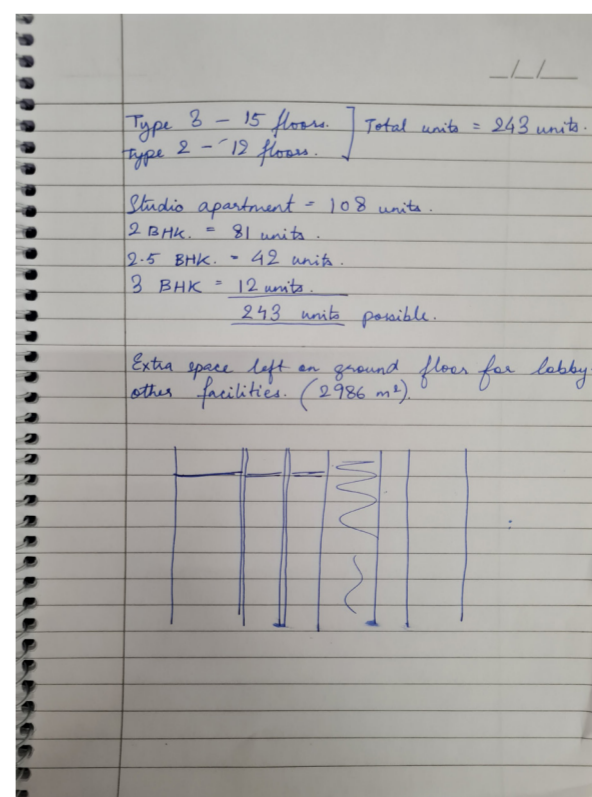 _/_/_
Type 3 - 15 floors. ] Total units = 243 units.
Type 2 - 12 floors.
Studio apartment = 108 units.
2 BHK. = 81 units.
2.5 BHK. = 42 units.
3 BHK = 12 units.
243 units possible.
Extra space left on ground floor for lobby
other facilities. (2986 m²).